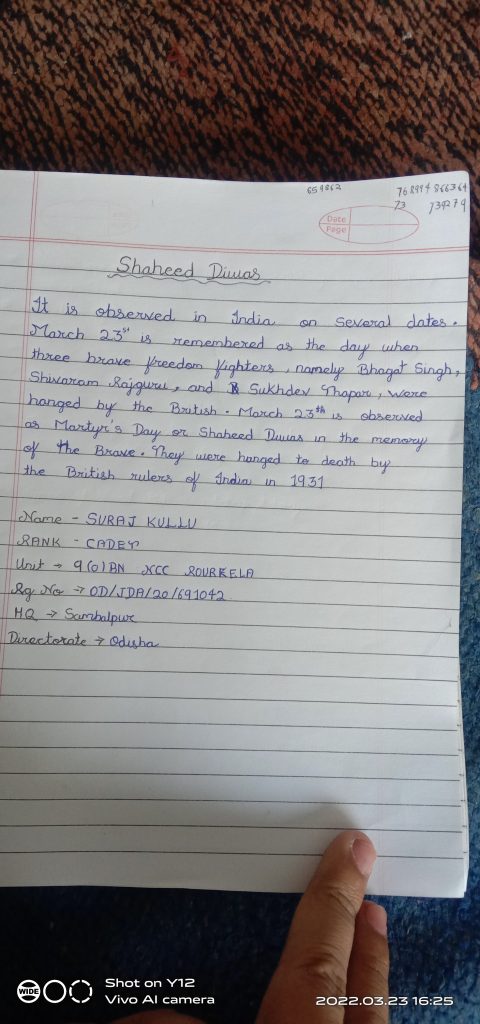 659862
768994866364
73 739279
Date
Page
Shaheed Diwas
It is observed in India on several dates.
March 23st is remembered as the day when
three brave freedom fighters, namely Bhagat Singh,
Shivaram Rajguru, and Sukhdev Thapar, were
hanged by the British. March 23th is observed
as Martyr's Day or Shaheed Diwas in the memory
of the Brave. They were hanged to death by
the British rulers of India in 1931
Name - SURAJ KULLU
RANK - CADET
Unit → 9(O)BN NCC ROURKELA
Rg No → OD/JDA/20/691042
HQ → Sambalpur
Directorate → Odisha
WIDE
Shot on Y12
Vivo AI camera
2022.03.23 16:25